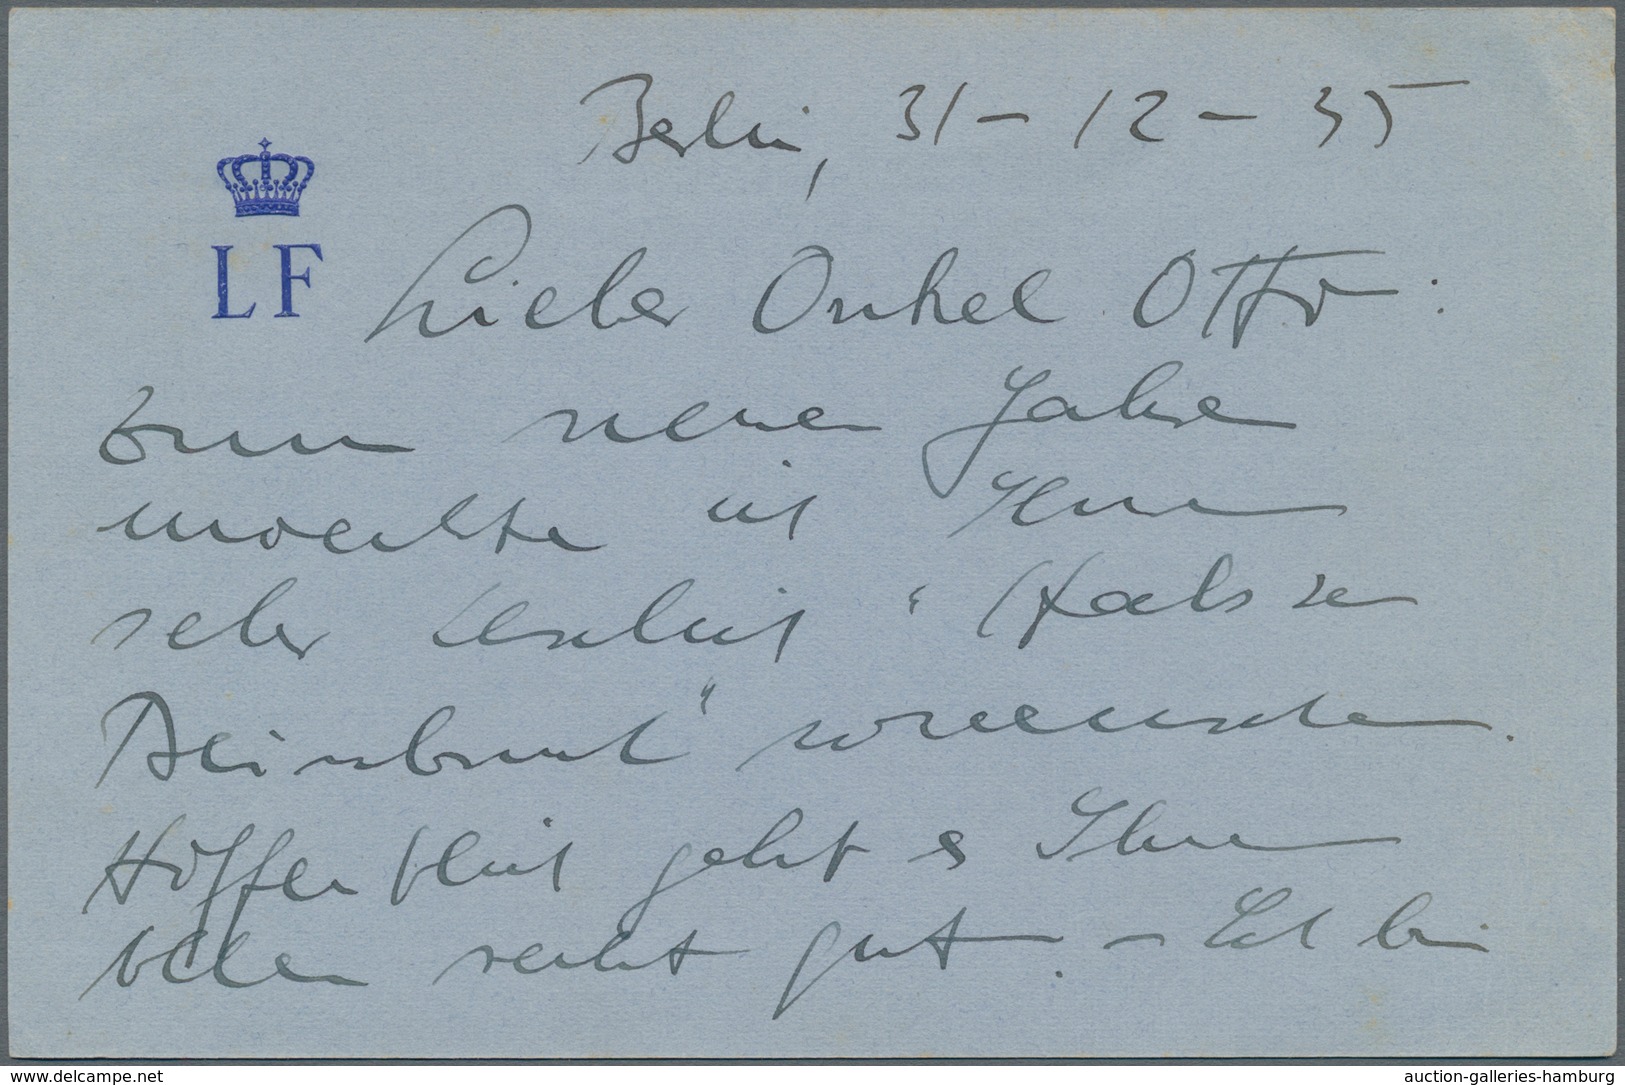 Berlin, 31 - 12 - 35
L F
Lieber Onkel Otto:
zum neuen Jahre
moechte ich Ihnen
sehr herzlich "Hals u
Beinbruch" wuenschen.
Hoffentlich geht es Ihnen
allen recht gut. - Ich bin
www.delcampe.net
auction-galleries-hamburg